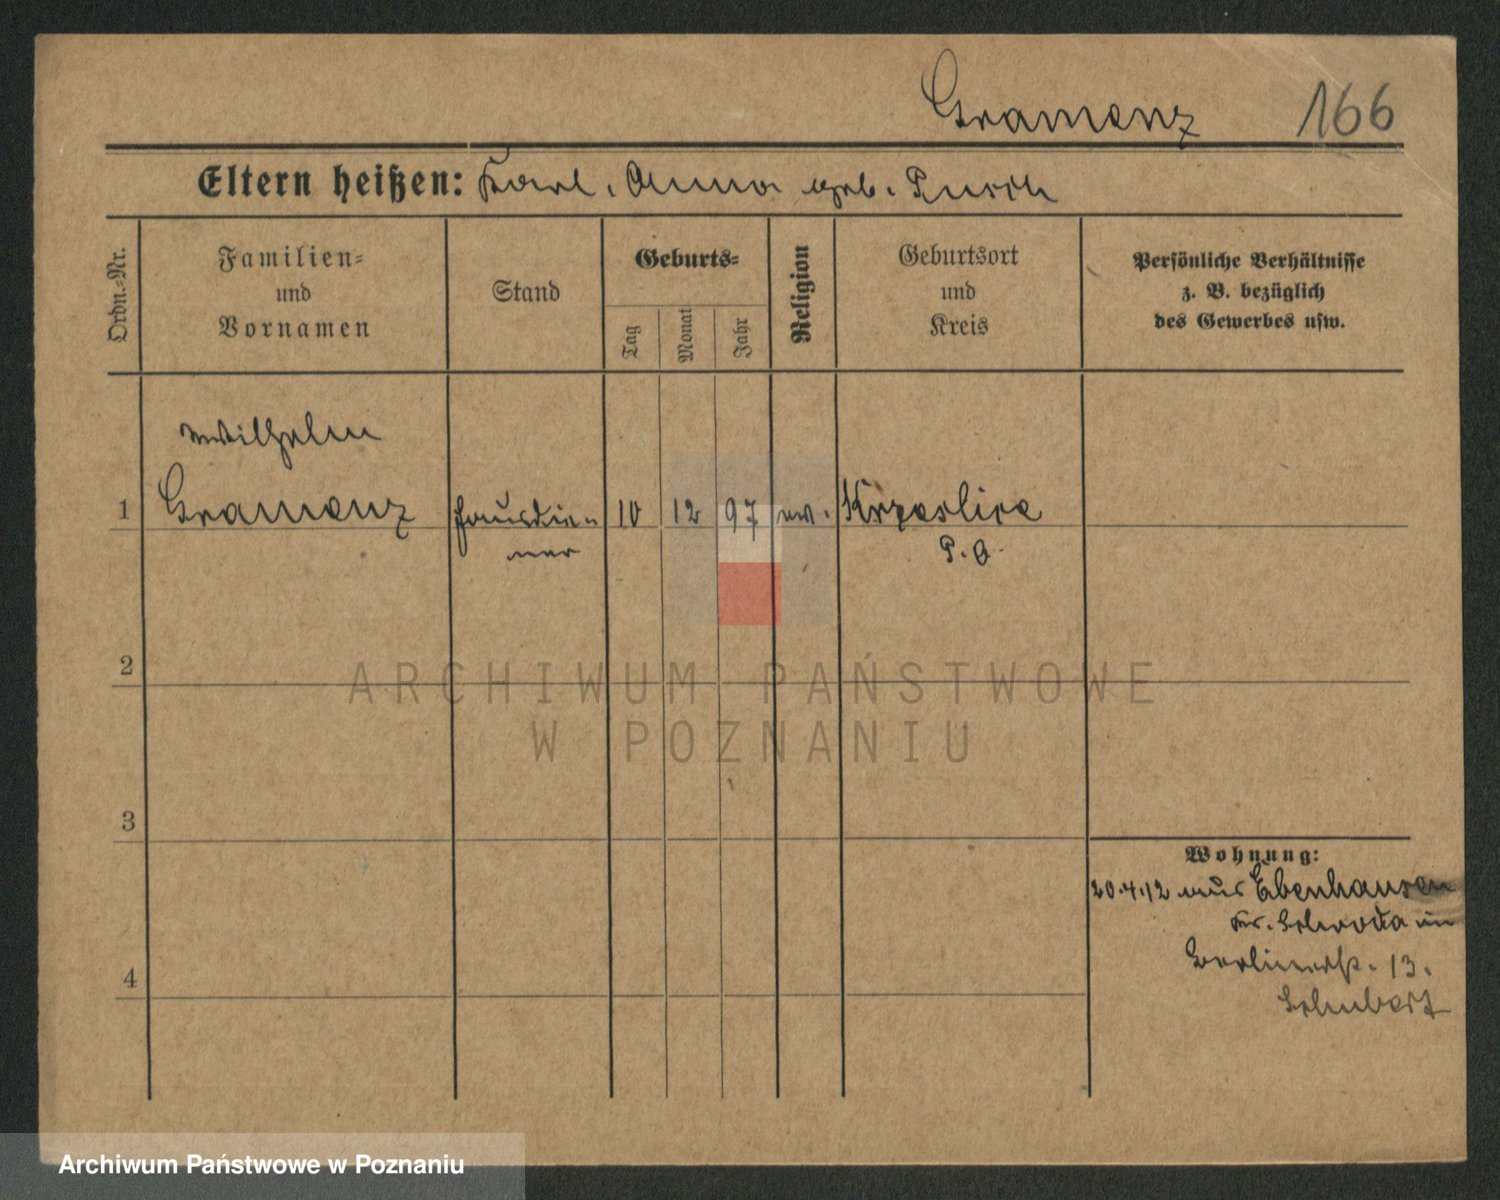 Gramenz 166
Eltern heißen: Karl. Anna geb. Pusch
Ordn.=Nr.
Familien=
und
Vornamen
Stand
Geburts=
Tag
Monat
Jahr
Religion
Geburtsort
und
Kreis
Persönliche Verhältnisse
z. B. bezüglich
des Gewerbes usw.
Wilhelm
1 Gramenz Hausdie= 10 12 97 ev. Krzeslice
ner P. O.
2
ARCHIWUM PAŃSTWOWE
W POZNANIU
3
Wohnung:
20.4.12 aus Ebenhausen
Kr. Schroda in
4 Berlinerstr. 13.
Schubert
Archiwum Państwowe w Poznaniu